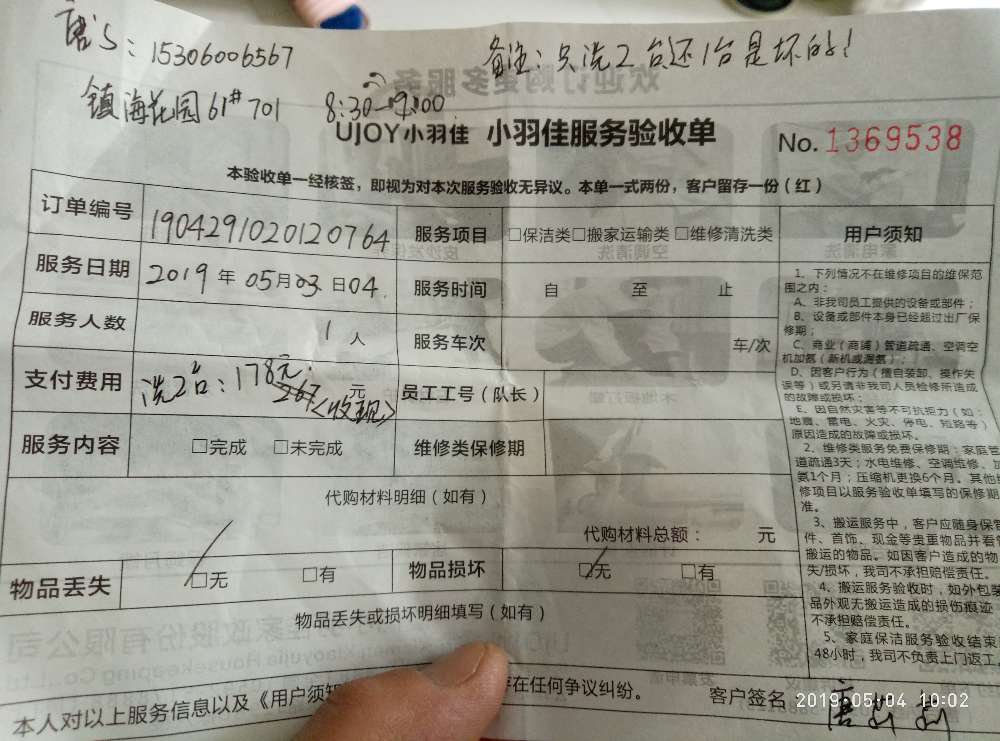 唐S：15306006567
备注：只洗2台还1台是坏的！
镇海花园61#701 8:30—9:00
UJOY小羽佳 小羽佳服务验收单
No. 1369538
本验收单一经核签，即视为对本次服务验收无异议。本单一式两份，客户留存一份（红）
订单编号 1904291020120764 服务项目 □保洁类□搬家运输类□维修清洗类
服务日期 2019年05月03日04. 服务时间 自 至 止
服务人数 1人 服务车次 车/次
支付费用 洗2台：178元. 267元 <收现> 员工工号（队长）
服务内容 □完成 □未完成 维修类保修期
代购材料明细（如有）
代购材料总额： 元
物品丢失 □无 □有 物品损坏 □无 □有
物品丢失或损坏明细填写（如有）
本人对以上服务信息以及《用户须知 存在任何争议纠纷。 客户签名 唐
用户须知
1、下列情况不在维修项目的维保范
围之内：
A、非我司员工提供的设备或部件；
B、设备或部件本身已经超过出厂保
修期；
C、商业（商铺）管道疏通、空调空
机加氨（新机或漏氨）；
D、因客户行为（擅自装卸、操作失
误等）或另请非我司人员检修所造成
的故障或损坏；
E、因自然灾害等不可抗拒力（如：
地震、雷电、火灾、停电、短路等）
原因造成的故障或损坏。
2、维修类服务免费保修期：家庭管
道疏通3天；水电维修、空调维修、加
氨1个月；压缩机更换6个月。其他维
修项目以服务验收单填写的保修期
准。
3、搬运服务中，客户应随身保管
件、首饰、现金等贵重物品并看管
搬运的物品。如因客户造成的物
失/损坏，我司不承担赔偿责任。
4、搬运服务验收时，如外包装
品外观无搬运造成的损伤痕迹
不承担赔偿责任。
5、家庭保洁服务验收结束
48小时，我司不负责上门返工
2019/05/04 10:02